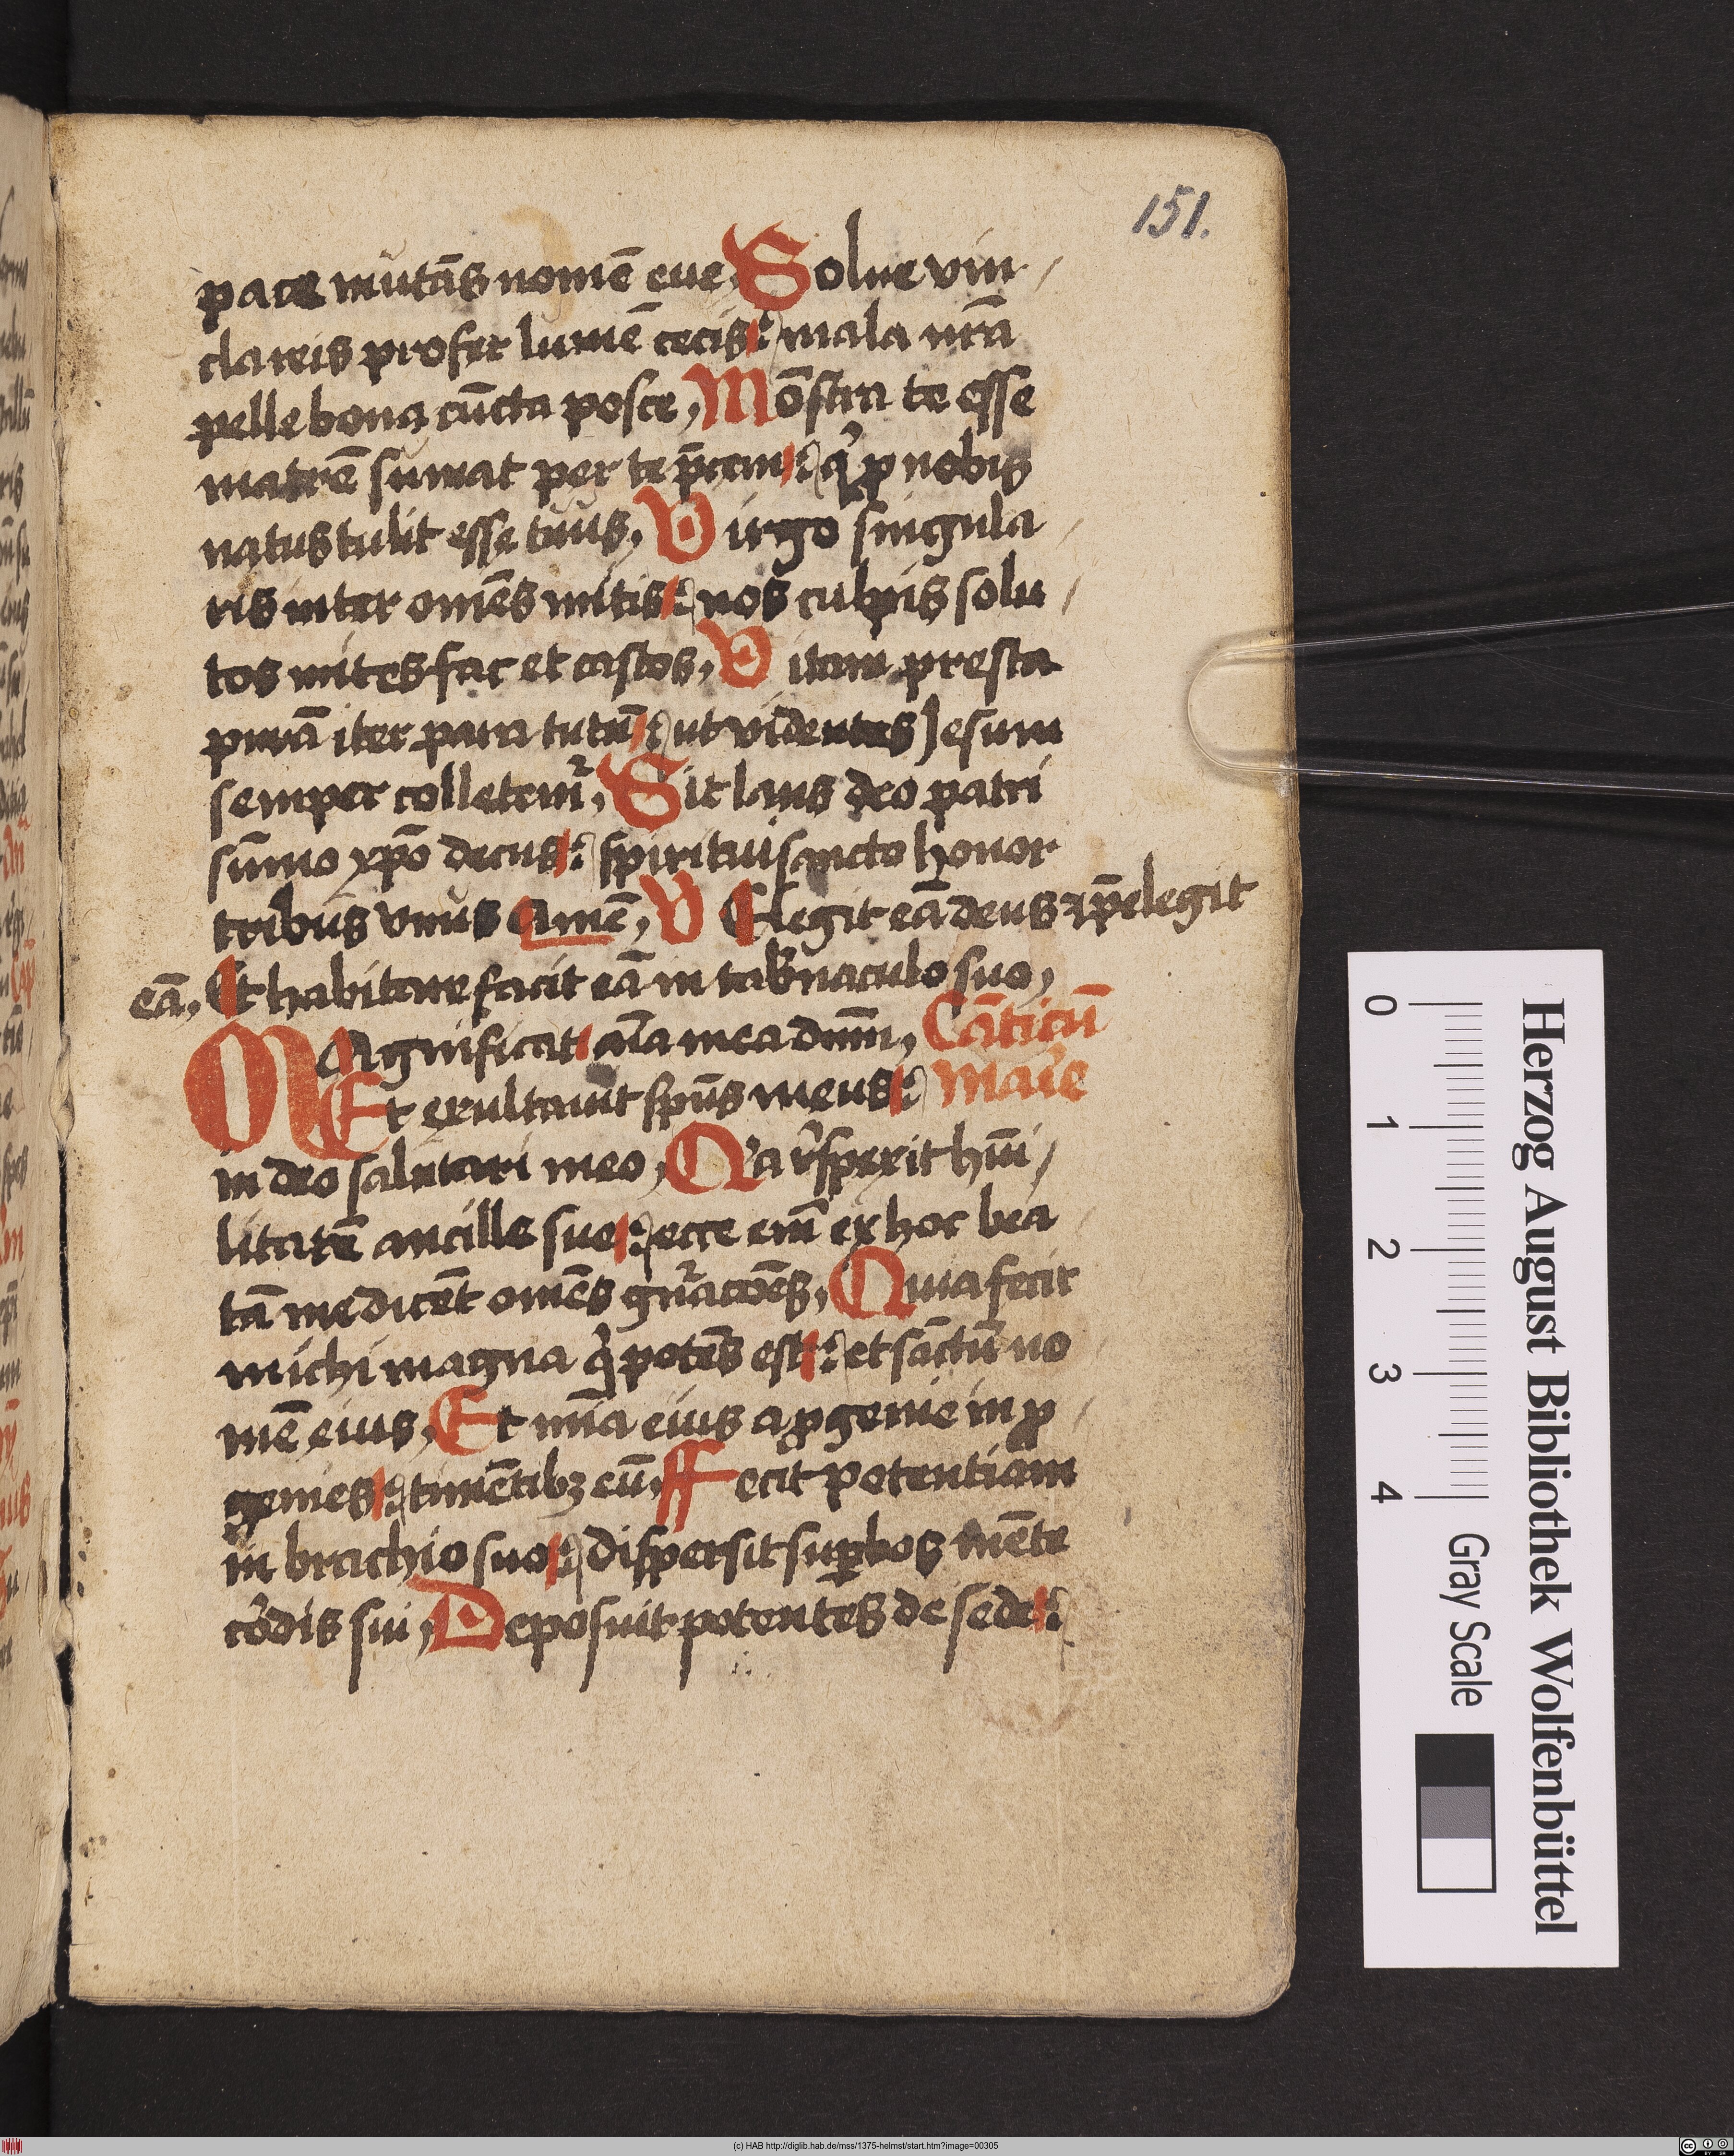 151.
pace mutās nomē eue, Solue vin
cla reis profer lumē cecis: mala nrā
pelle bona cūcta posce, Mōstra te esse
matrē sumat per te p̄cem: q̇ ꝓ nobis
natus tulit esse tuus, Virgo singula
ris inter omēs mitis: nos culpis solu
tos mites fac et castos, Vitam presta
purā iter para tutū: ut videntes Jesum
semper colletemr̃, Sit laus deo patri
sūmo xpō decus: spiritui sancto honor
tribus vnus Amē, V Elegit eā deus ⁊ p̄elegit
eā, Et habitare facit eā in tab̄naculo suo,
MAgnificat aīa mea dnm̄, Cāticū
Et exultauit spūs meus: Marie
in deo salutari meo, Qͥa r̄spexit hūi
litatē ancille sue: ecce em̄ ex hoc bea
tā me dicēt omēs gn̄racōes, Quia fecit
michi magna q̇ potēs est: et sāctū no
mē eius, Et mīa eius a ꝓgenie in ꝓ
genies: timētibꝫ eū, ffecit potentiam
in brachio suo: dispersit suꝑbos mēte
cōdis sui, Deposuit potentes de sede:
Herzog August Bibliothek Wolfenbüttel
0 1 2 3 4 Gray Scale
(c) HAB http://diglib.hab.de/mss/1375-helmst/start.htm?image=00305